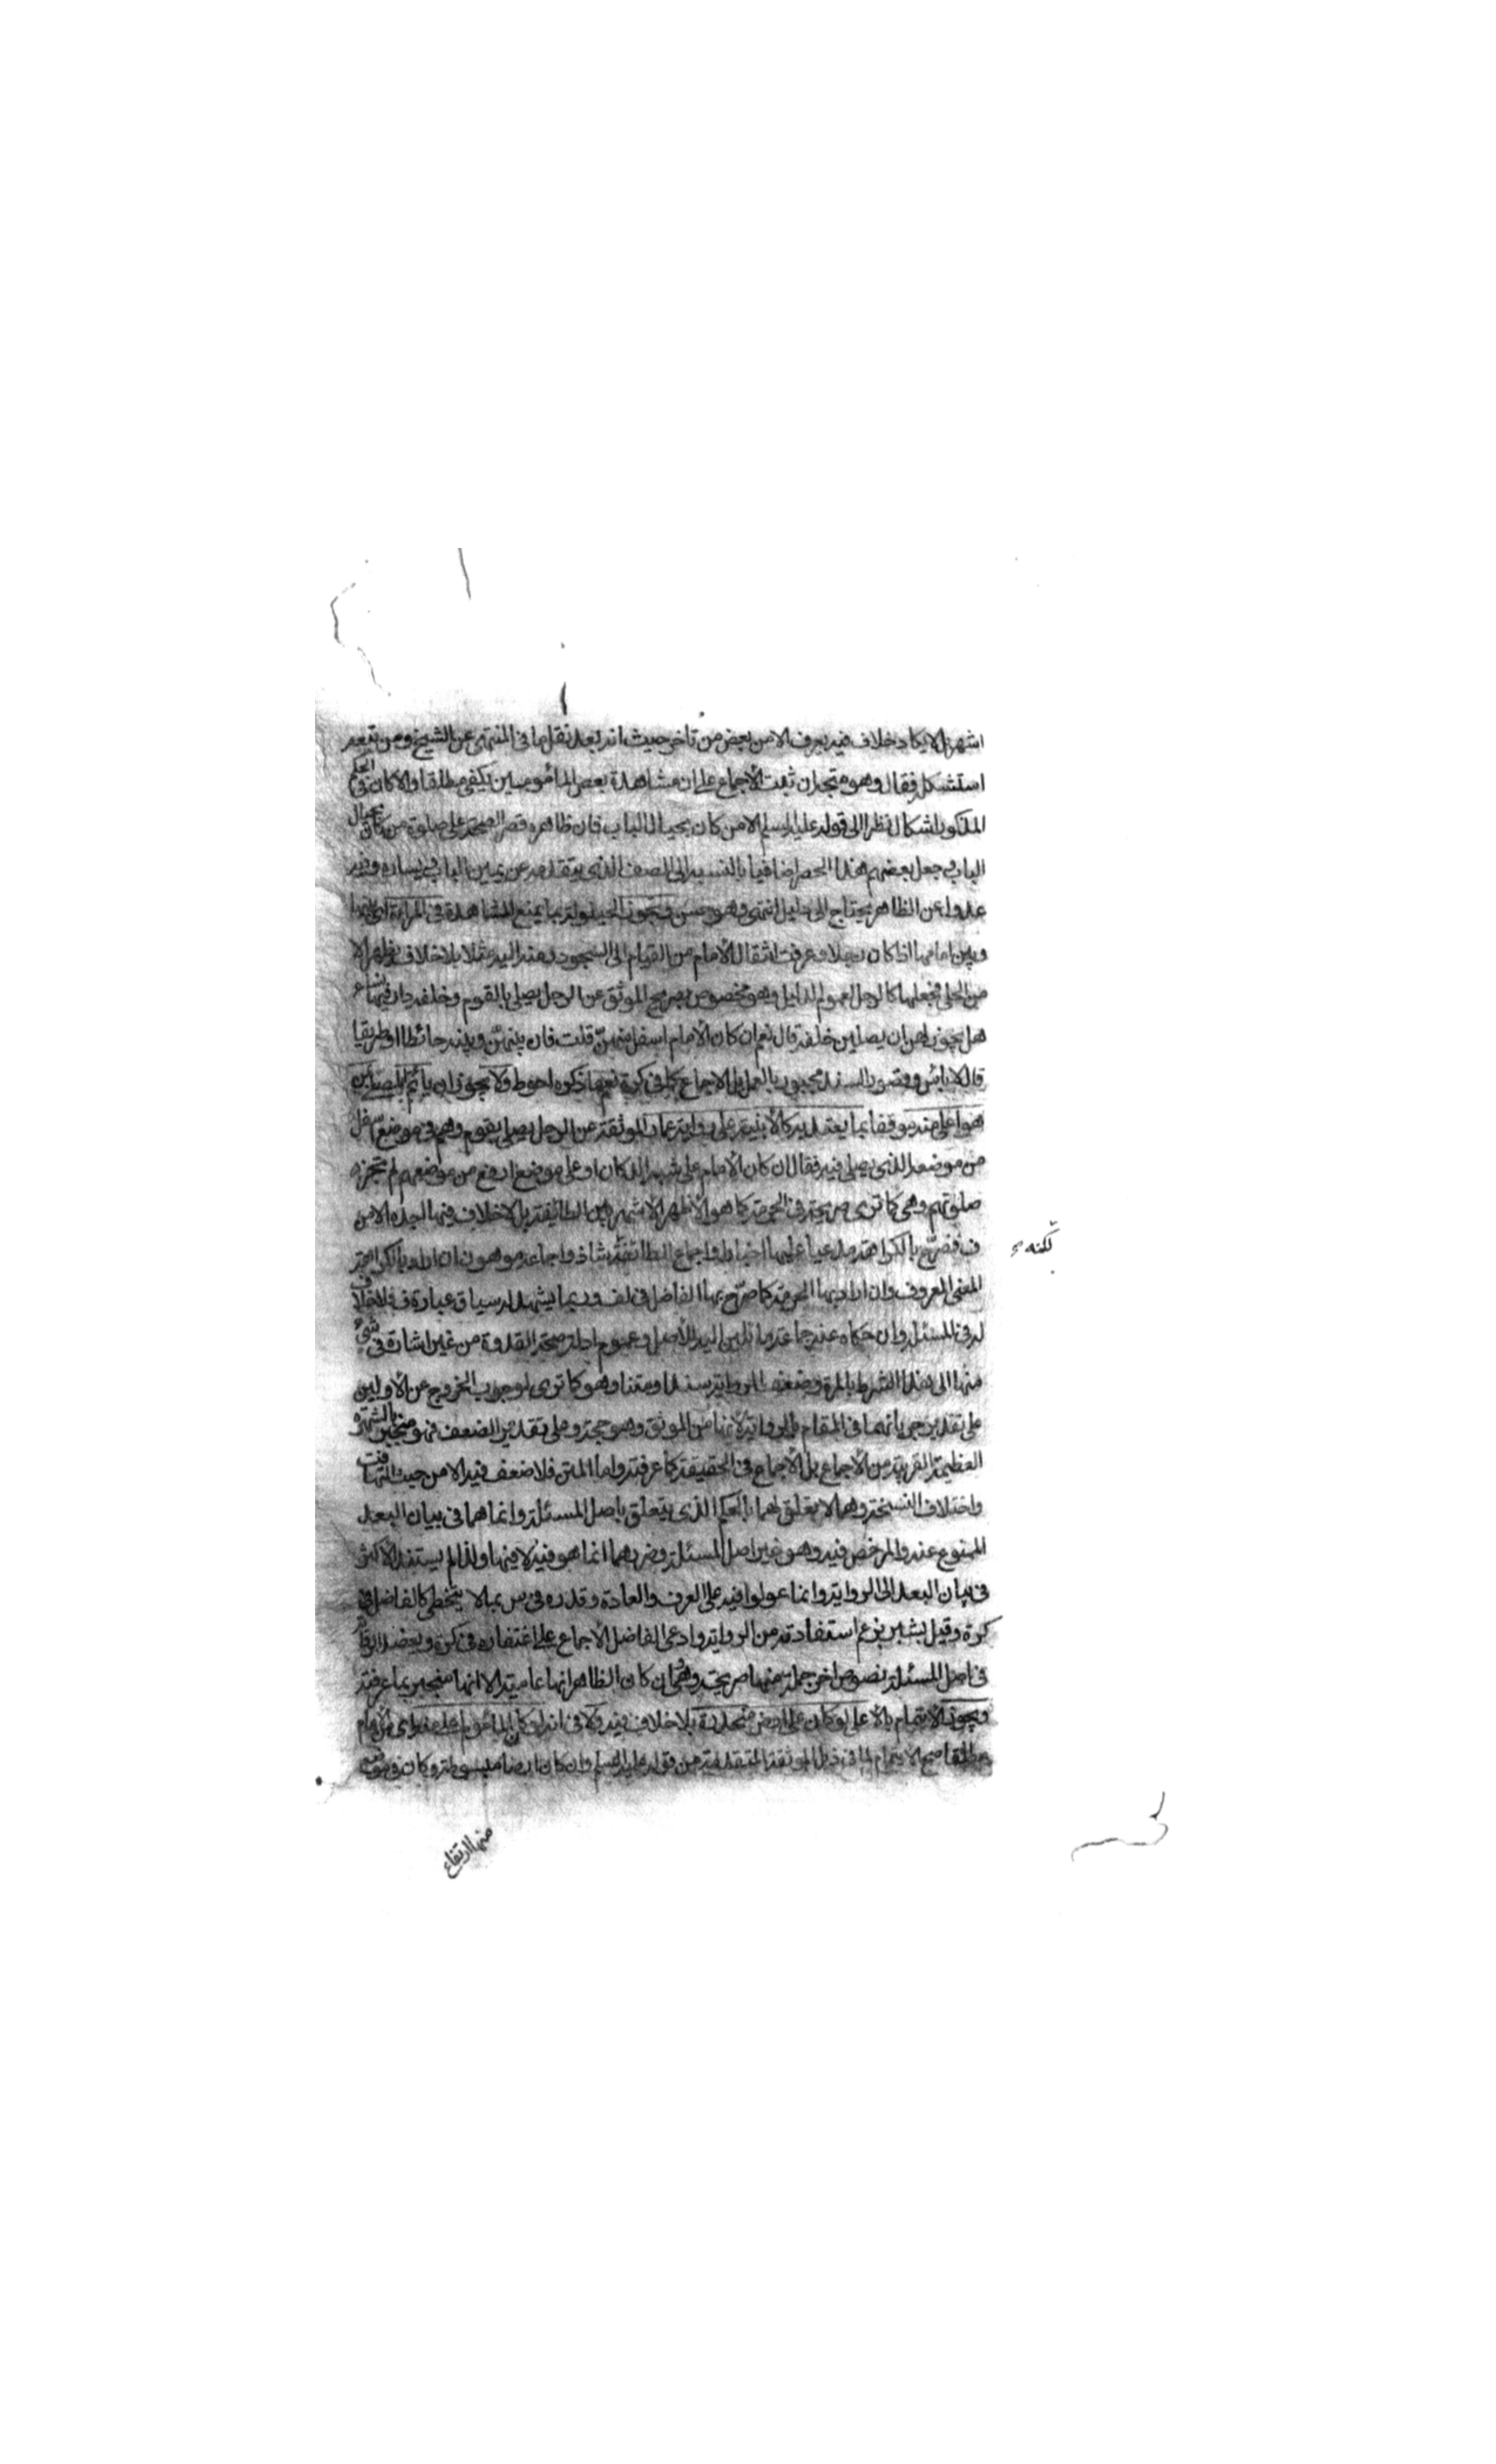 اشهر بل لا يكاد خلاف فيه يعرف الا من بعض من تاخر حيث انه بعد نقل ما فى المنتهى عن الشيخ ومن تبعه
استشكله فقال وهو متجه ان ثبت الأجماع على ان مشاهدة بعض المأمومين يكفى مطلقا والا كان فى الحكم
المذكور اشكال نظرا الى قوله عليه السلم الا من كان بحيال الباب فان ظاهره قصر الصحة على صلوة من كان بحيال
الباب وجعل بعضهم هذا الحصر اضافيا بالنسبة الى الصف الذى يتقدمه عن يمين الباب ويساره وفيه
عدول عن الظاهر يحتاج الى دليل انتهى وهو حسن ويجوز الحيلولة بما يمنع المشاهدة فى المراءة اى بينها
وبين امامها اذا كان رجلا وعرفت انتقال الأمام من القيام الى السجود ومنه اليه مثلا بلا خلاف يظهر الا
من الحلى فجعلها كالرجل لعموم الدليل وهو مخصوص بصريح الموثق عن الرجل يصلى بالقوم وخلفه دار فيها نساء
هل يجوز لهن ان يصلين خلفه قال نعم ان كان الأمام اسفل منهنّ قلت فان بينهنّ وبينه حائطا او طريقا
قال لا بأس وقصور السند مجبور بالعمل بل الاجماع كما فى كرة نعم ما ذكره احوط ولا يجوز ان يأتم بمن
هو اعلى منه موقفا بما يعتد به كالأبنية على رواية عمار الموثقة عن الرجل يصلى بقوم وهم فى موضع اسفل
من موضعه الذى يصلى فيه فقال ان كان الأمام على شبه الدكان او على موضع ارفع من موضعهم لم تجز
صلوتهم وهى كما ترى صريحة فى الحرمة كما هو الأظهر الأشهر بين الطائفة بل لا خلاف فيها اجده الا من
ف فصرّح بالكراهة مدعيا عليها اخبار واجماع الطائفة شاذ واجماعه موهون ان اراد بالكراهة
لكنه
المعنى المعروف وان اراد بها الحرمة كما صرّح بها الفاضل فى لف وربما يشهد له سياق عبارة ف فلا خلاف
له فى المسئلة وان حكاه عنه جماعة مائلين اليه للأصل وعموم ادلة صحة القدوة من غير اشارة فى شئ
منها الى هذا الشرط بالمرة وضعف الرواية سندا ومتنا وهو كما ترى لوجوب الخروج عن الأولين
على تقدير جريانهما فى المقام بالرواية لأنها من الموثق وهو حجة وعلى تقدير الضعف فهو منجبر بالشهرة
العظيمة القريبة من الأجماع بل الأجماع فى الحقيقة كما عرفته واما المتن فلا ضعف فيه الا من حيث التهافت
واختلاف النسخة وهما لا يعلق لهما بالحكم الذى يتعلق باصل المسئلة وانما هما فى بيان البعد
الممنوع عنه والمرخص فيه وهو غير اصل المسئلة وضرهما انما هو فيه لا فيها ولذا لم يستند الاكثر
فى بيان البعد الى الرواية وانما عولوا فيه على العرف والعادة وقدره فى س بما لا يتخطى كالفاضل فى
كرة وقيل بشبر بزعم استفادته من الرواية وادعى الفاضل الأجماع على اغتفاره فى كرة ويعضد الرواية
فى اصل المسئلة نصوص اخر جملة منها صريحة وهى وان كان الظاهر انها عامية الا انها منجبر بما عرفته
ويجوز الايتمام بالأعلى لو كان على ارض منحدرة بلا خلاف فيه ولا فى انه لو كان المأموم اعلى منه اى من الأمام
مطلقا صح الايتمام لما فى ذيل الموثقة المتقدمة من قوله عليه السلم وان كان ارضا مبسوطة وكان فى موضع
منها ارتفاع